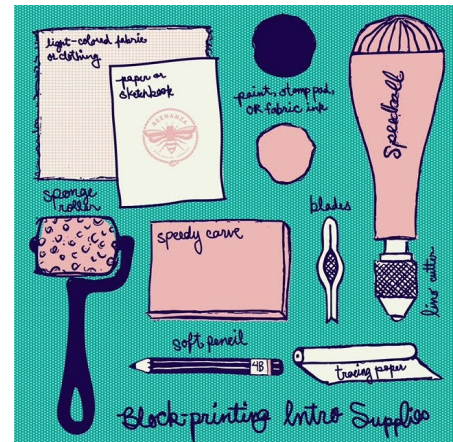 light-colored fabric
or clothing
paper or
sketchbook
BEEHANZA
paint, stamp pad,
OR fabric ink
Speedball
sponge
roller
speedy carve
blades
lino cutter
soft pencil
4B
tracing paper
Block-printing Intro Supplies